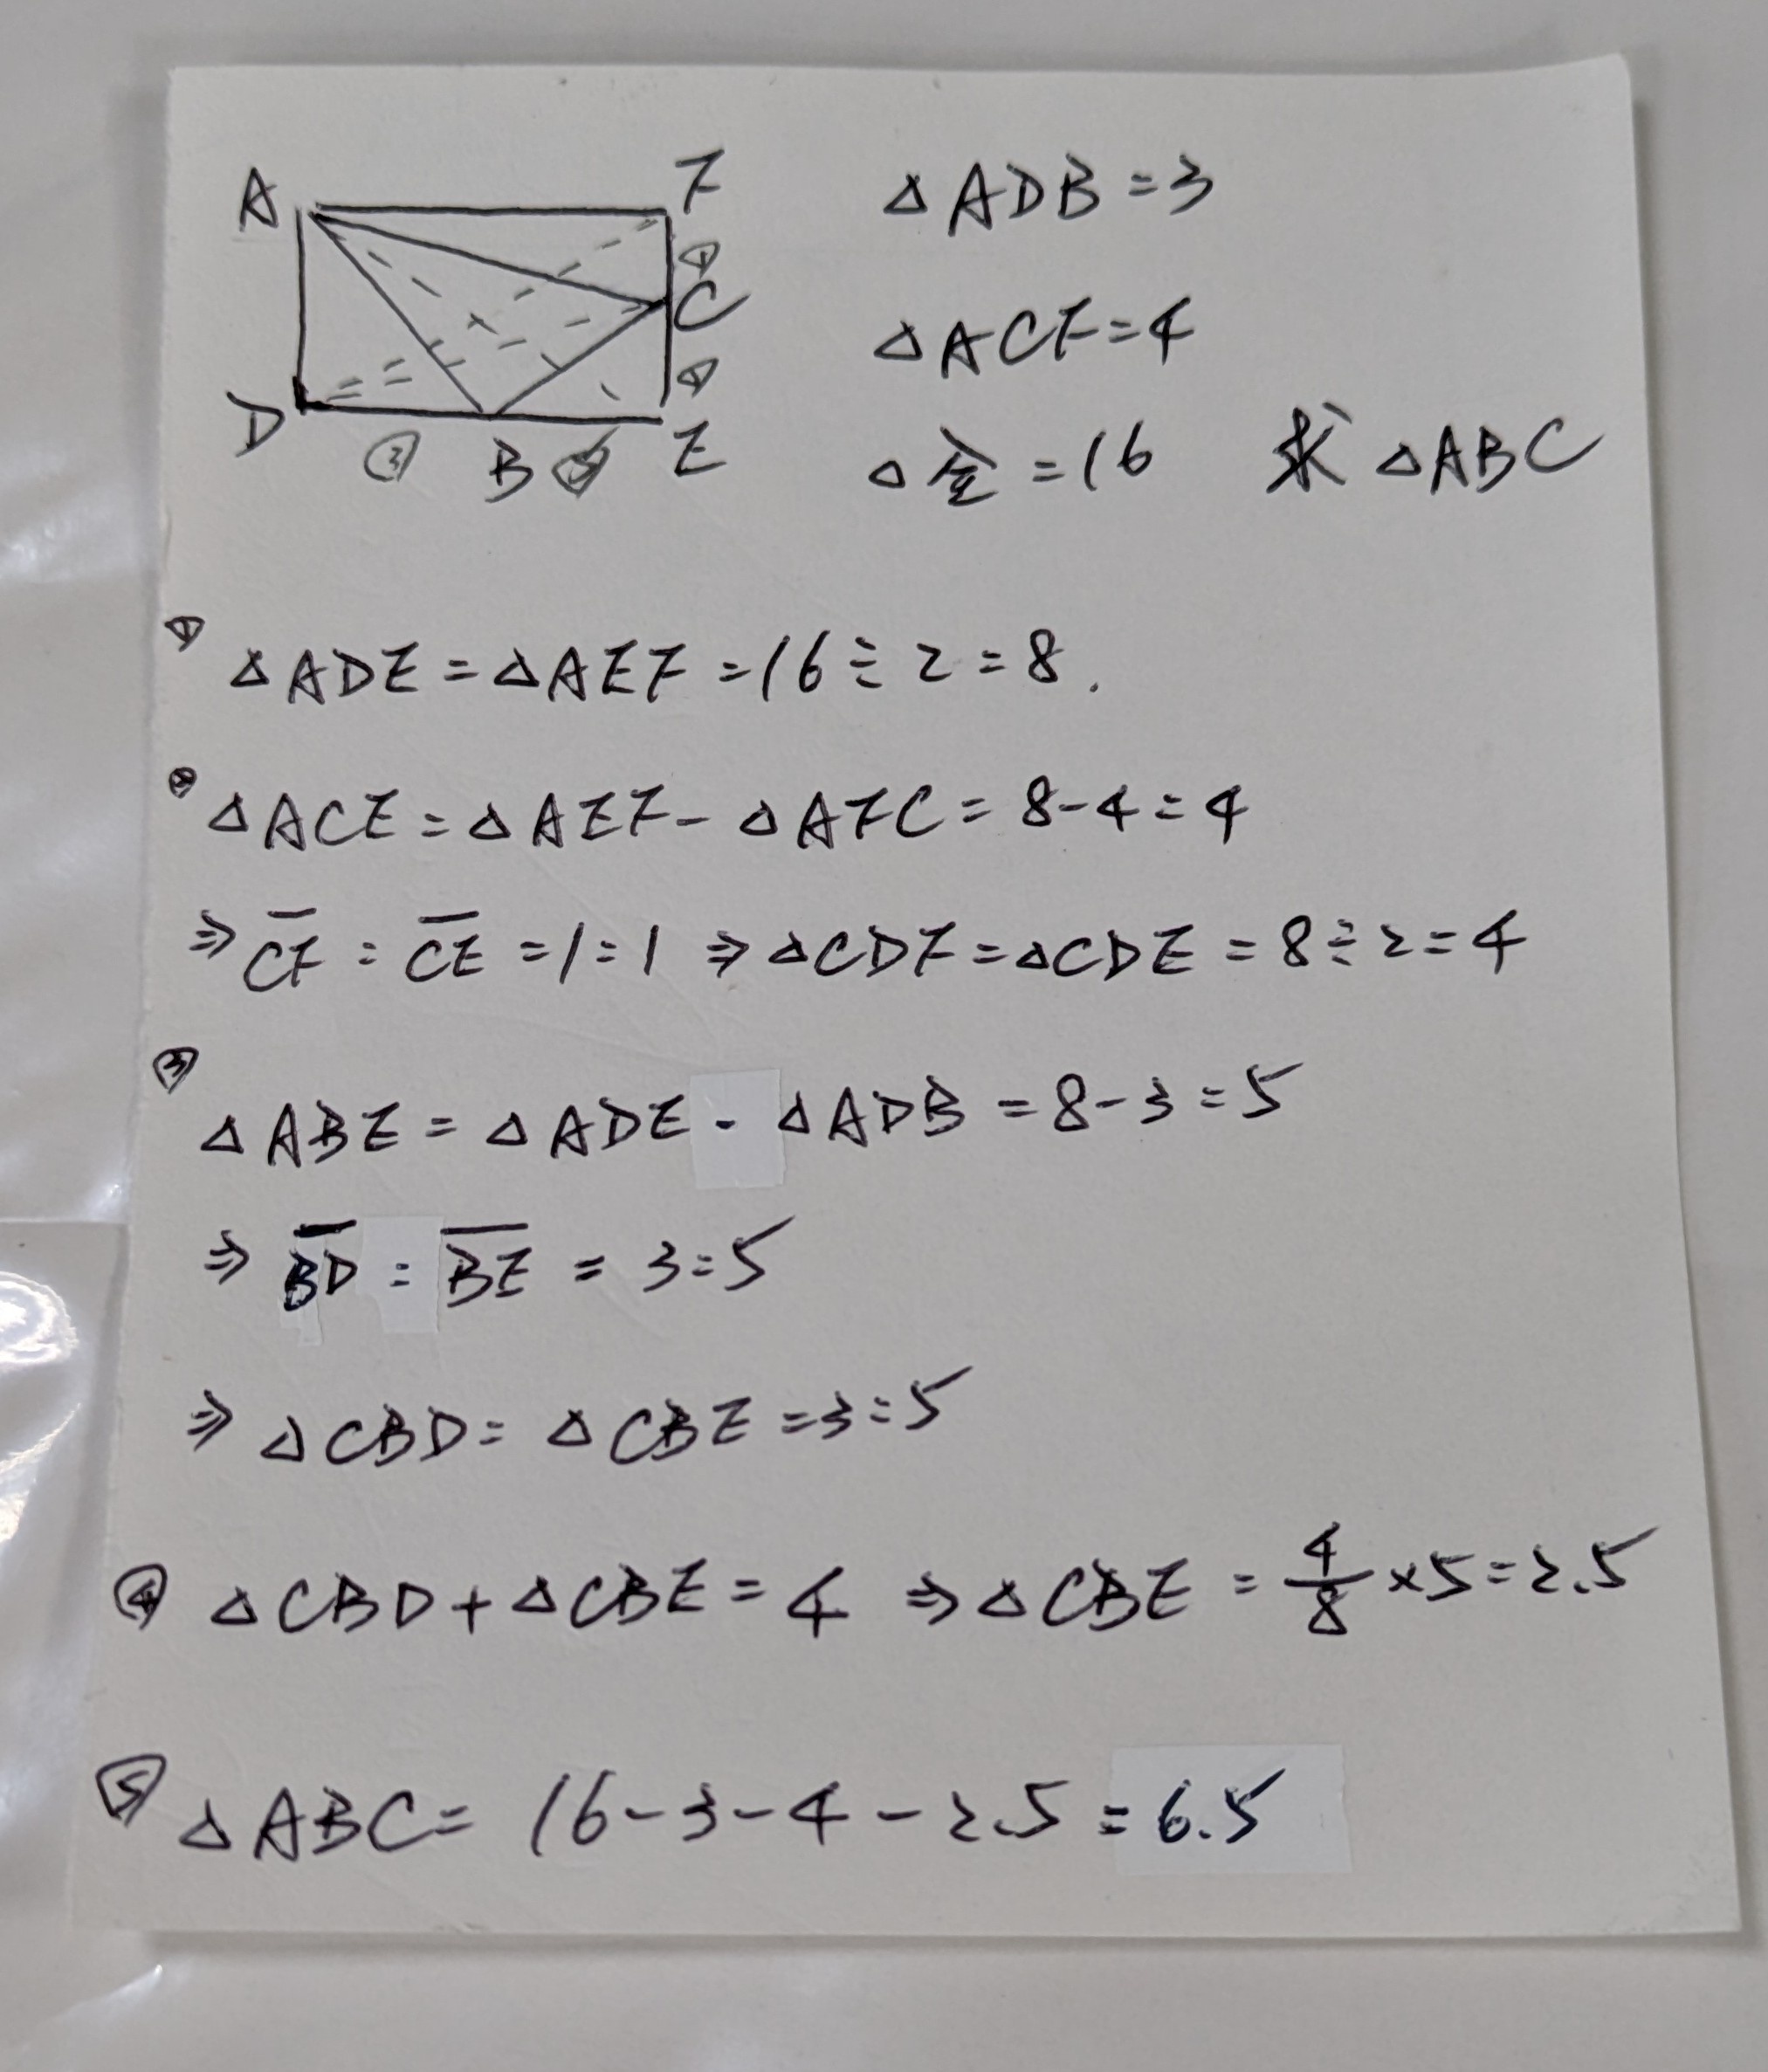 A F △ADB=3
①
C △ACF=4
①
D ③ B ⑤ E △全=16 求△ABC
① △ADE=△AEF=16÷2=8.
② △ACE=△AEF-△AFC=8-4=4
⇒ CF:CE=1:1 ⇒ △CDF=△CDE=8÷2=4
③ △ABE=△ADE-△ADB=8-3=5
⇒ BD:BE=3:5
⇒ △CBD:△CBE=3:5
④ △CBD+△CBE=4 ⇒ △CBE=4/8×5=2.5
⑤ △ABC=16-3-4-2.5=6.5